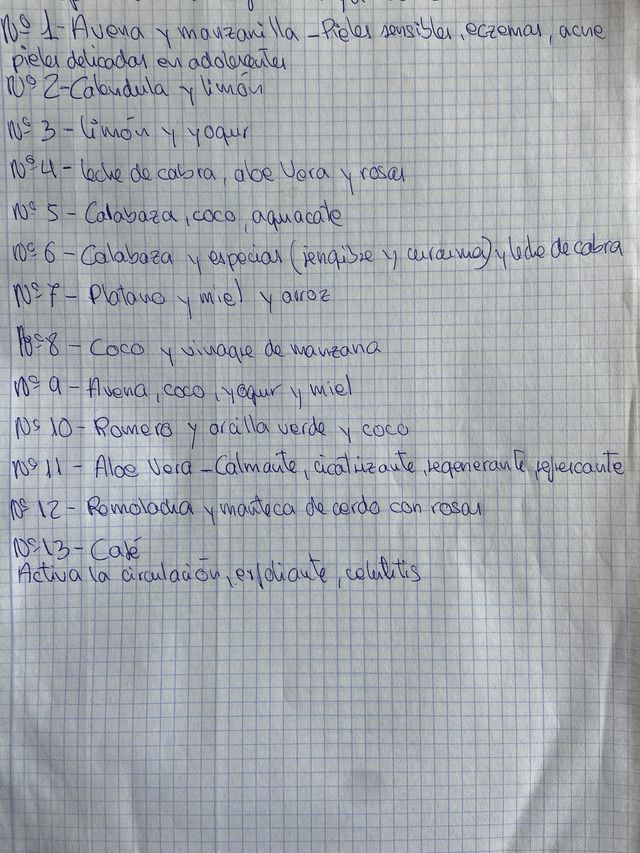 Nº 1- Avena y manzanilla - Pieles sensibles, eczemas, acne
pieles delicadas en adolesentes
Nº 2- Calendula y limón
Nº 3 - limón y yogur
Nº 4 - leche de cabra, aloe Vera y rosas
Nº 5 - Calabaza, coco, aguacate
Nº 6 - Calabaza y especias (jengibre y curcuma) y leche de cabra
Nº 7 - Platano y miel y arroz
Nº 8 - Coco y vinagre de manzana
Nº 9 - Avena, coco, yogur y miel
Nº 10 - Romero y arcilla verde y coco
Nº 11 - Aloe Vera - Calmante, cicatrizante, regenerante, refrescante
Nº 12 - Remolacha y manteca de cerdo con rosas
Nº 13 - Café
Activa la circulación, exfoliante, celulitis